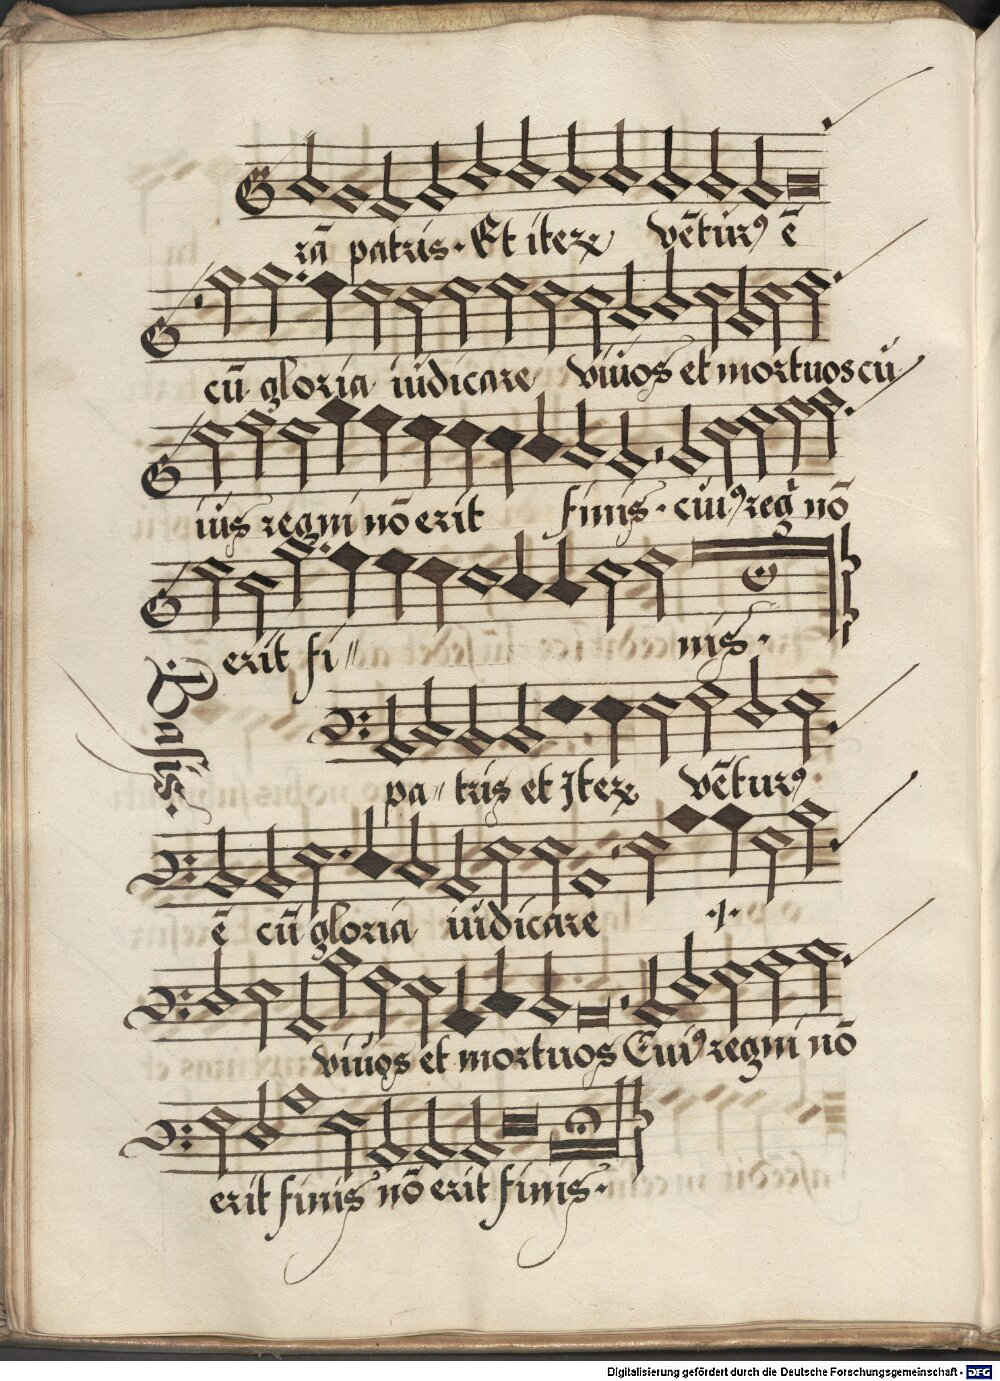 rā patris · Et iterꝝ vētirꝰ ē
cū gloria iudicare viuos et mortuos cū
iuis regni nō erit finis · cuiꝰ regͣ nō
erit fi〃 nis ·
Basis ·
pa〃 tris et Iterꝝ vēturꝰ
ē cū gloria iudicare ·/·
viuos et mortuos Cuiꝰ regni nō
erit finis nō erit finis ·
Digitalisierung gefördert durch die Deutsche Forschungsgemeinschaft - DFG